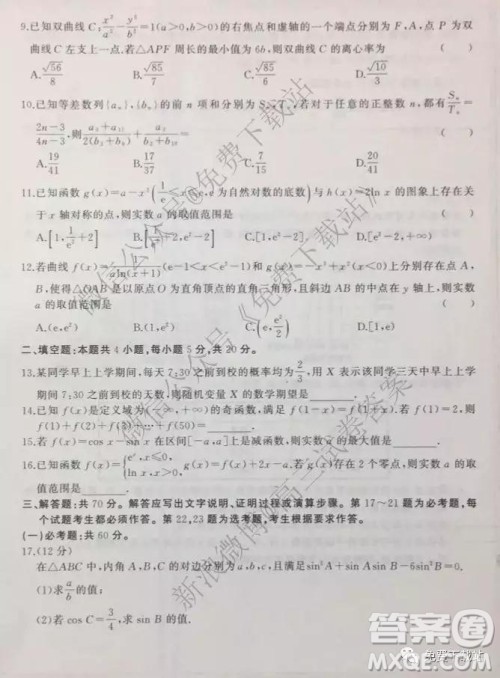 9.已知双曲线C:x²/a²-y²/b²=1(a>0,b>0)的右焦点和虚轴的一个端点分别为F,A,点P为双
曲线C左支上一点,若△APF周长的最小值为6b,则双曲线C的离心率为 ( )
A.√56/8 B.√85/7 C.√85/8 D.√10/3
10.已知等差数列{aₙ},{bₙ}的前n项和分别为Sₙ,Tₙ,若对于任意的正整数n,都有Sₙ/Tₙ=
(2n-3)/(4n-3),则
A.19/41 B.17/37 C.7/15 D.20/41
11.已知函数g(x)=a-x²(1/e<x<e,e为自然对数的底数)与h(x)=2ln x的图象上存在关
于x轴对称的点,则实数a的取值范围是 ( )
A.[1,1/e²+2] B.[1,e²-2] C.[1,e²-2] D.[e²-2,+∞)
12.若曲线f(x)=1/aln(x+1)(e-1<x<e²-1)和g(x)= (x<0)上分别存在点A,
B,使得△OAB是以原点O为直角顶点的直角三角形,且斜边AB的中点在y轴上,则实数
a的取值范围是 ( )
A.(e,e²) B.(e,e²/2) C.(1,e²) D.[1,e)
二、填空题:本题共4小题,每小题5分,共20分。
13.某同学早上上学期间,每天7:30之前到校的概率均为2/3,用X表示该同学三天中早上上学
期间7:30之前到校的天数,则随机变量X的数学期望是
14.已知f(x)是定义域为(-∞,+∞)的奇函数,满足f(1-x)=f(1+x).若f(1)=2,则
f(1)+f(2)+f(3)+…+f(50)=
15.若f(x)=cos x-sin x在区间[-a,a]上是减函数,则实数a的最大值是
16.已知函数f(x)={eˣ,x≤0, ln x,x>0,g(x)=f(x)+2x-a.若g(x)存在2个零点,则实数a的取
值范围是
三、解答题:共70分。解答应写出文字说明、证明过程或演算步骤。第17~21题为必考题,每
个试题考生都必须作答。第22,23题为选考题,考生根据要求作答。
(一)必考题:共60分。
17.(12分)
在△ABC中,内角A,B,C的对边分别为a,b,c,且满足sin²A+sin Asin B-6sin²B=0.
(1)求a/b的值;
(2)若cos C=3/4,求sin B的值.
新浪微博@高三试卷答案
微信公众号《免费下载站》
微信公众号@免费下载站
答案卷
免费下载站
MXQE.COM